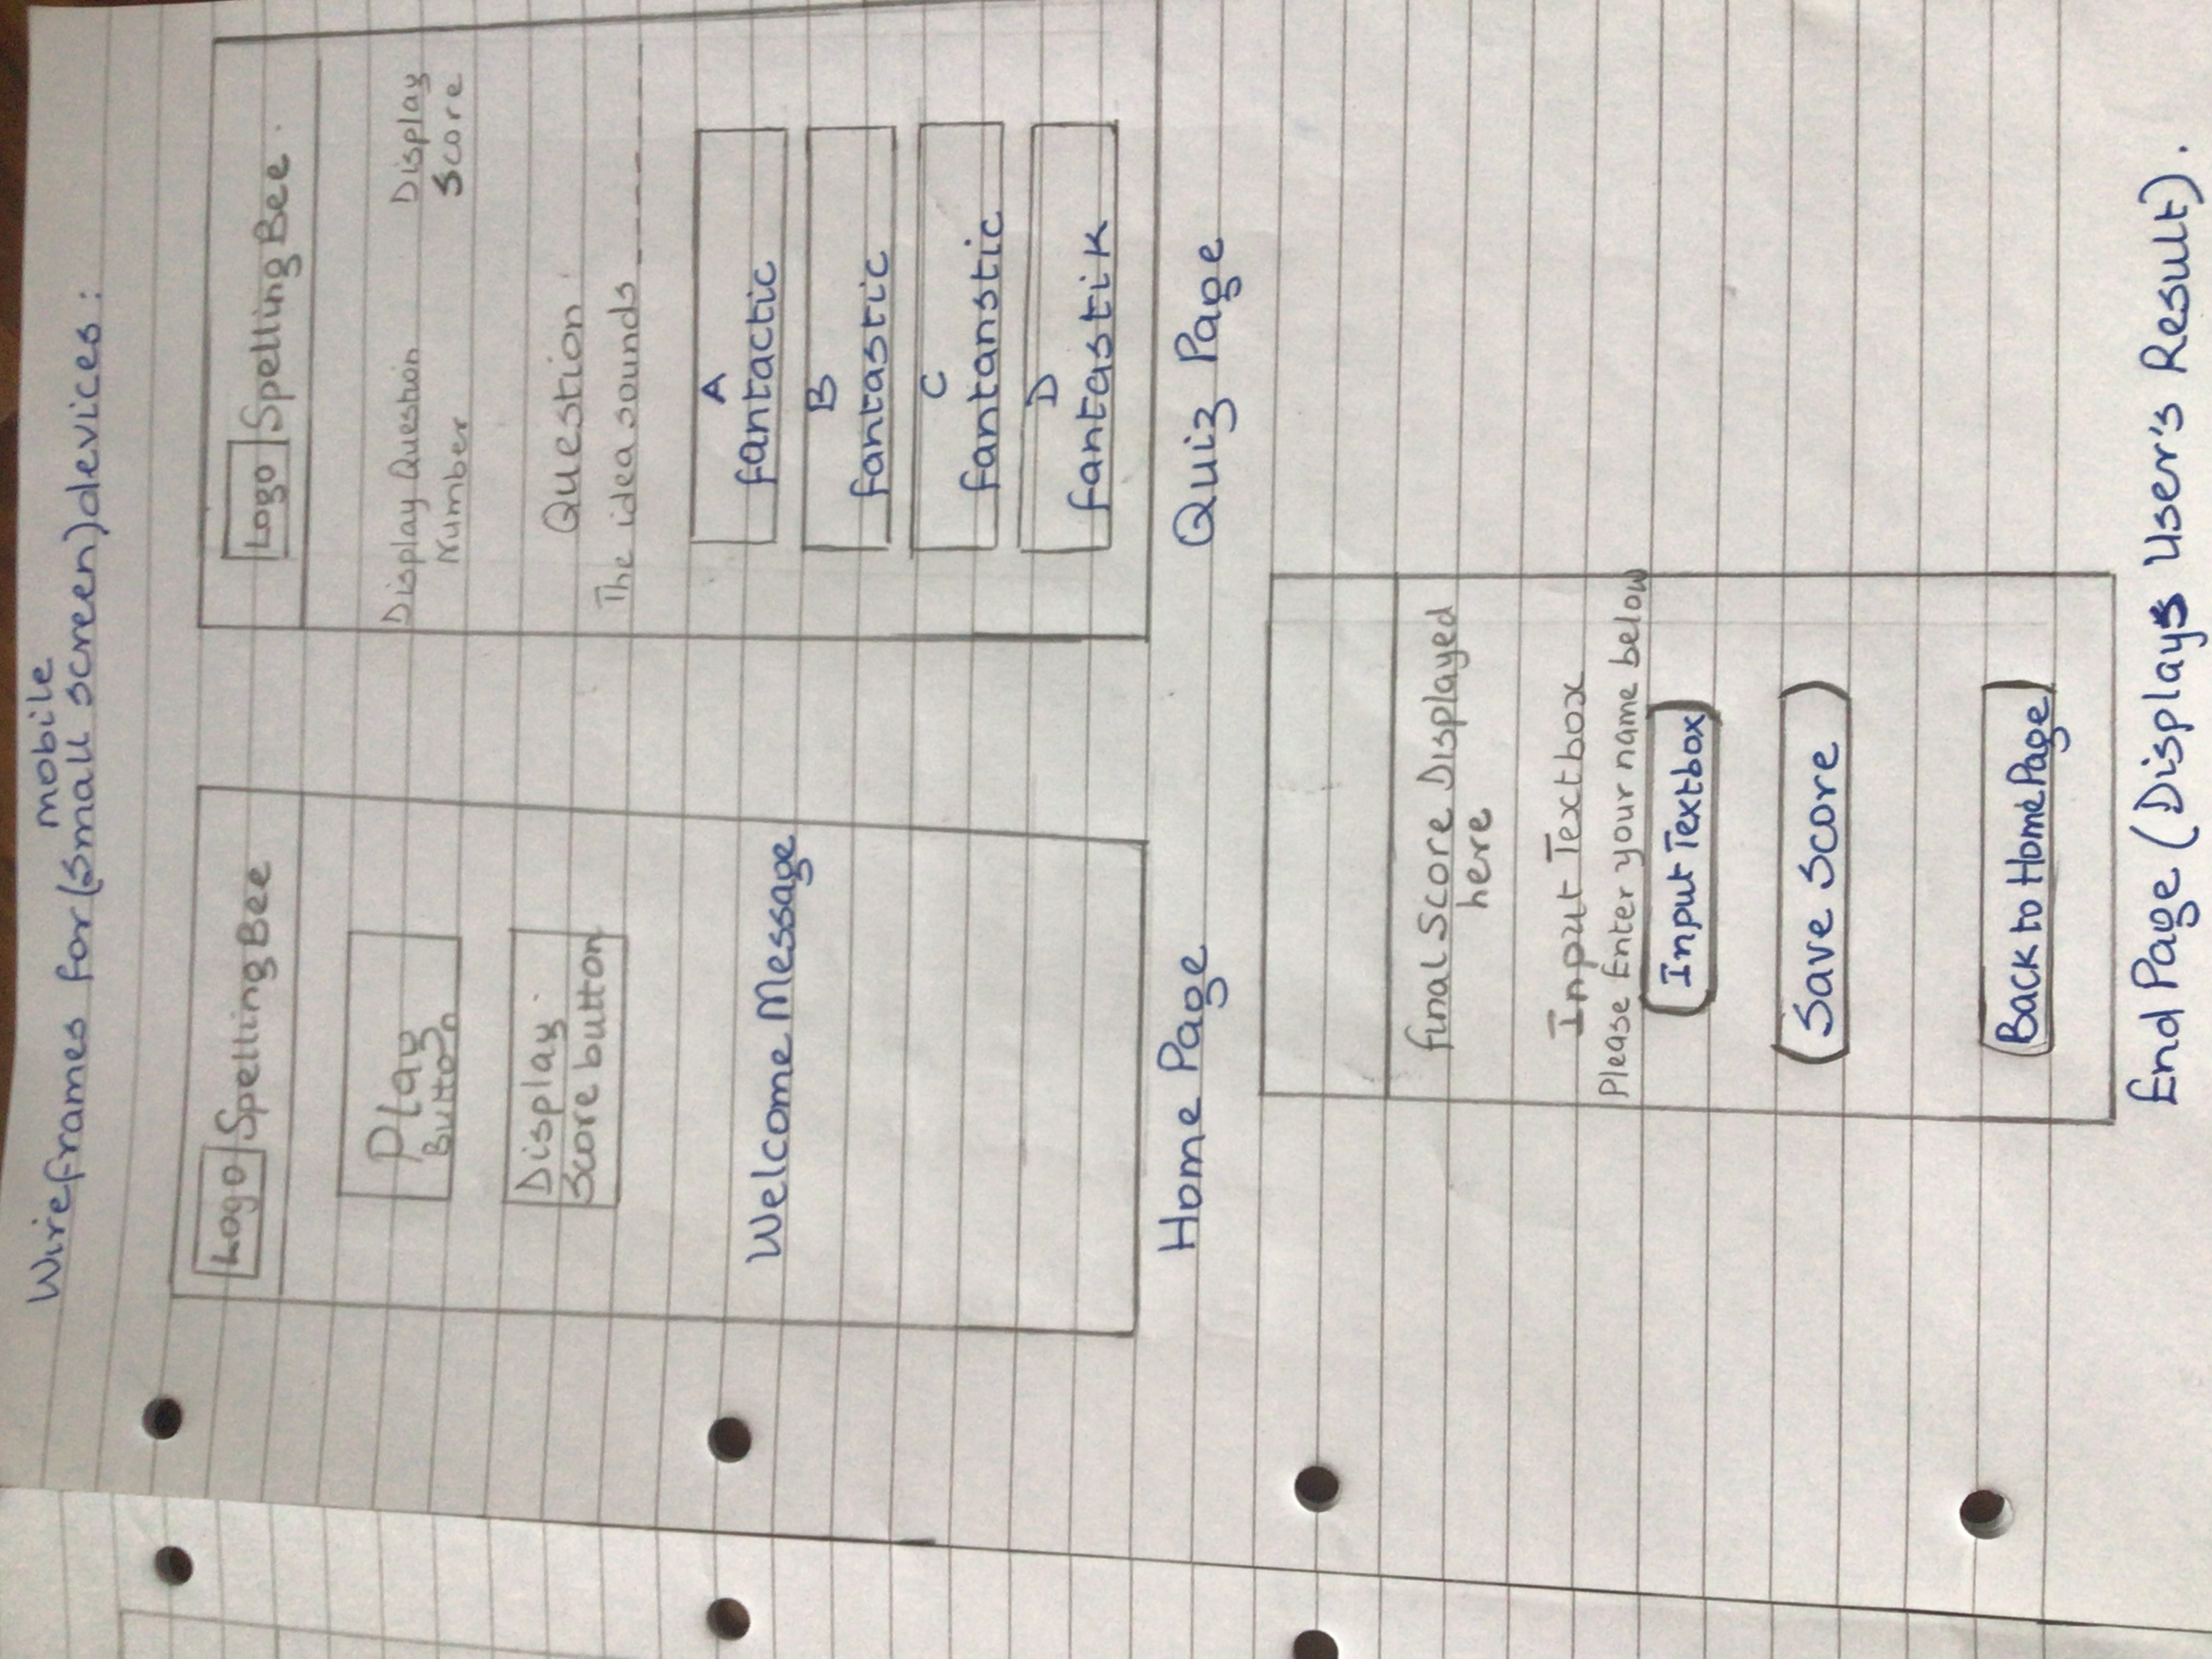 mobile
Wireframes for (Small screen) devices :
Logo Spelling Bee
Play
Button
Display
Score button
Welcome Message
Home Page
Logo Spelling Bee
Display Question
Number
Display
Score
Question
The idea sounds _ _ _ _ _ _ _
A
fantactic
B
fantastic
C
fantanstic
D
fantastik
Quiz Page
final Score Displayed
here
Input Textbox
Please Enter your name below
Input Textbox
Save Score
Back to Home Page
End Page (Displays User's Result).